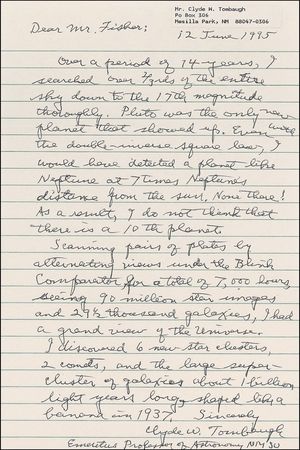 Mr. Clyde W. Tombaugh
PO Box 306
Mesilla Park, NM 88047-0306
Dear Mr. Fisher:
12 June 1995
Over a period of 14 years, I
searched over 2/3rds of the entire
sky down to the 17th magnitude
thoroughly. Pluto was the only new
planet that showed up. Even with
the double-inverse square law, I
would have detected a planet like
Neptune at 7 times Neptune's
distance from the sun. None there!
As a result, I do not think that
there is a 10th planet.
Scanning pairs of plates by
alternating views under the Blink
Comparator for a total of 7,000 hours,
seeing 90 million star images
and 29½ thousand galaxies, I had
a grand view of the Universe.
I discovered 6 new star clusters,
2 comets, and the large super-
cluster of galaxies about 1 billion
light years long, shaped like a
banana in 1937. Sincerely
Clyde W. Tombaugh
Emeritus Professor of Astronomy, NMSU